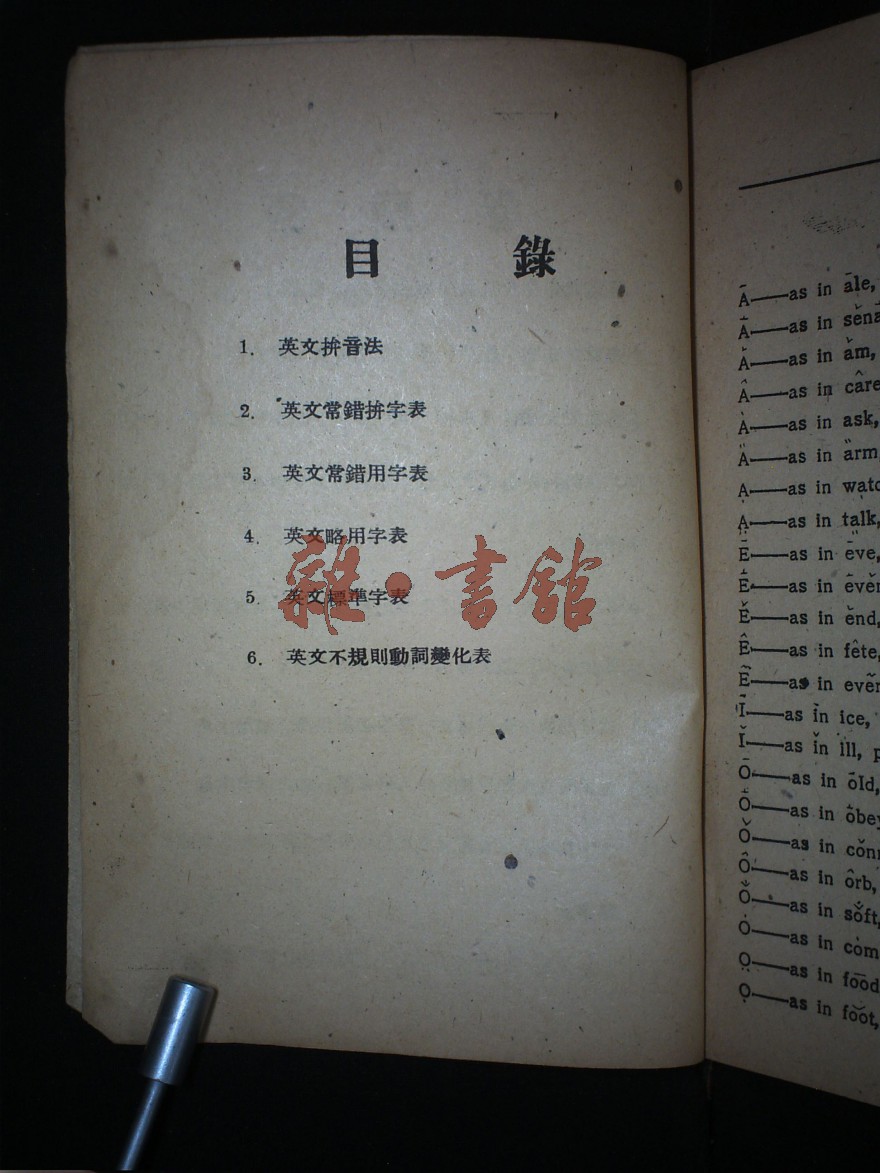 目 錄
1. 英文拚音法
2. 英文常錯拚字表
3. 英文常錯用字表
4. 英文略用字表
5. 英文標準字表
6. 英文不規則動詞變化表
雜·書館
Ā——as in āle,
Ȧ——as in
Ă——as in ăm,
Â——as in câre
Ȧ——as in ask,
Ä——as in ärm
Ạ——as in
A̤——as in talk,
Ē——as in ēve,
Ė——as in
Ĕ——as in ĕnd,
Ê——as in fête,
Ẽ——as in
Ī——as in ice,
Ĭ——as in ĭll, p
Ō——as in ōld,
Ȯ——as in
Ŏ——as in
Ô——as in ôrb,
Ŏ——as in
Ȯ——as in
Ọ——as in fo͞od
Ọ——as in fo͝ot,